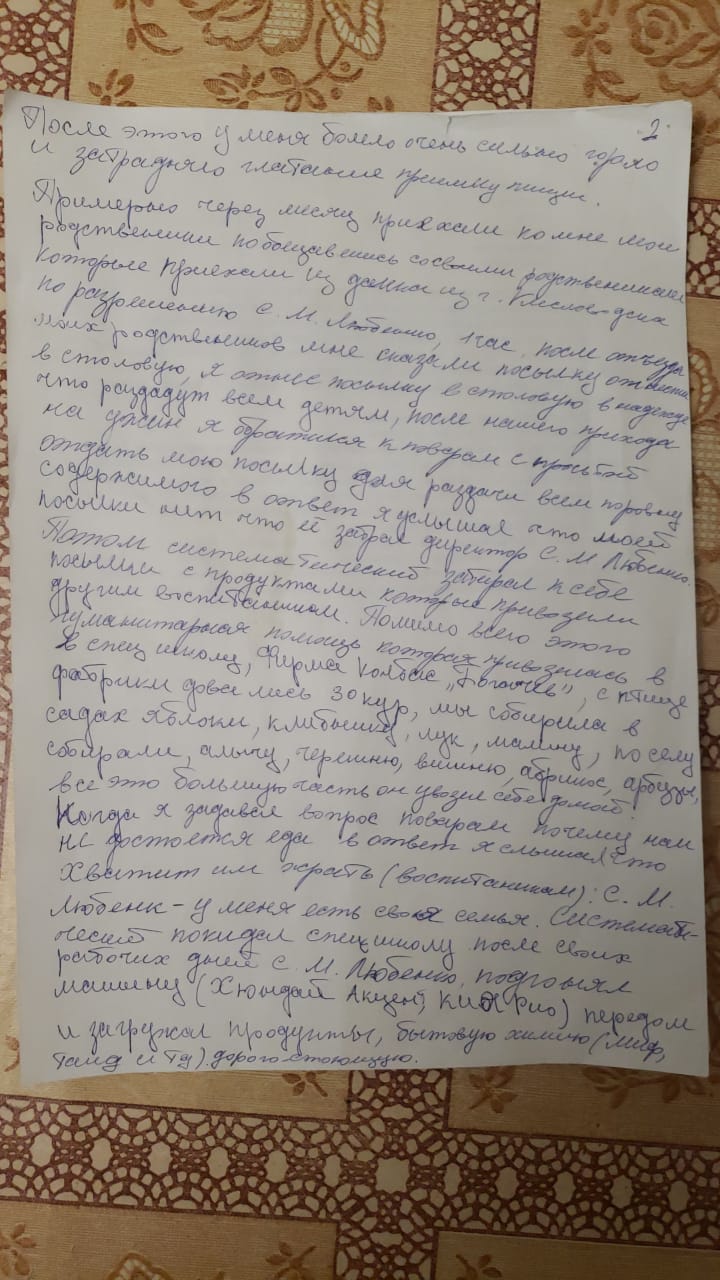 2
После этого у меня болело очень сильно горло
и затрадняло глатание приемку пищи.
Примерно через месяц приехали ко мне мои
родственники пообощавшись со своими родственниками
которые приехали из далика из г. Кисловодска
по разрешению С. М. Любенко, 1 час, после отъезда
моих родственников мне сказали посылку отнести
в столовую, я отнес посылку в столовую в надежде
что раздадут всем детям, после нашего прихода
на ужин я обратился к поварам с просьбой
отдать мою посылку для раздачи всем поровну
содержимого в ответ я услышал что моей
посылки нит что её забрал директор С. М Любенко.
Потом систематический забирал к себе
посылки с продуктами которые привозили
другим воспитаником. Помимо всего этого
гуманитарная помощь которая привозилась в
в спец школу, Фирма Колбас „Богачев", с птице
фабрики довались 30 кур, мы собирила в
садах яблоки, клубынику, лук, малину, по селу
собирали, алычу, черешню, вишню, абрикос, арбузы,
все это большую часть он увозел себе домой
Когда я задавал вопрос поварам почему нам
не достоется еда в ответ я слышал что
хватит им жрать (воспитаникам): С. М.
Любенк - у меня есть своя семья. Системати-
ческий покидал спецшколу после своих
рабочих дней С. М. Любенко, подгонял
машину (Хюндай Акцент, КИА Рио) передом
и загружал продукты, бытовую химию (миф,
таид и тд). дорого-стоющую.